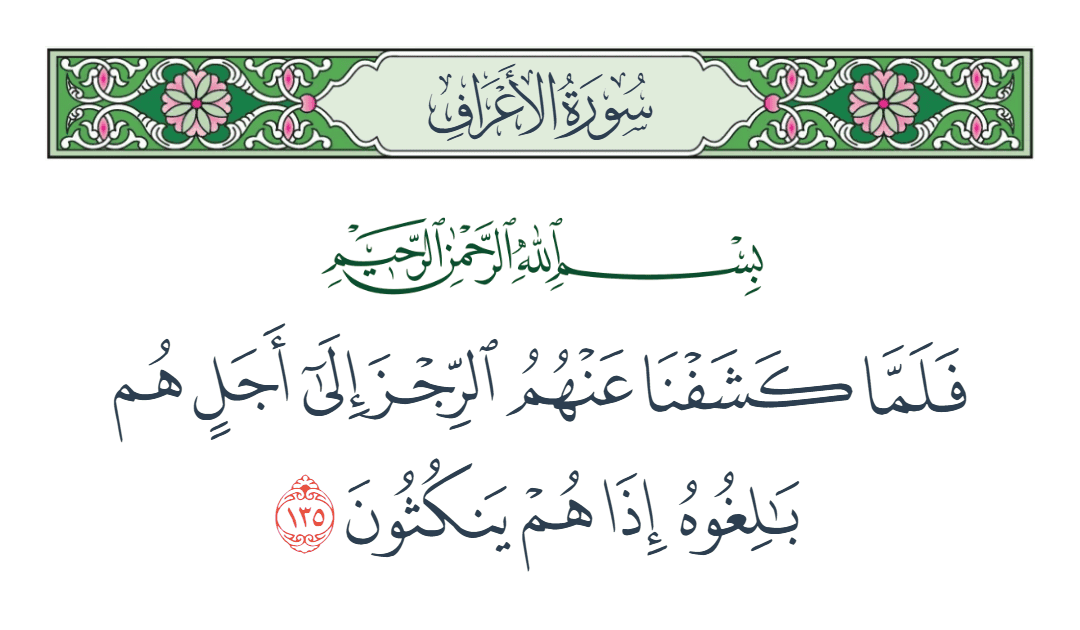 سُورَةُ الأَعْرَافِ
بِسْمِ ٱللَّهِ ٱلرَّحْمَٰنِ ٱلرَّحِيمِ
فَلَمَّا كَشَفْنَا عَنْهُمُ ٱلرِّجْزَ إِلَىٰٓ أَجَلٍ هُم
بَٰلِغُوهُ إِذَا هُمْ يَنكُثُونَ ١٣٥